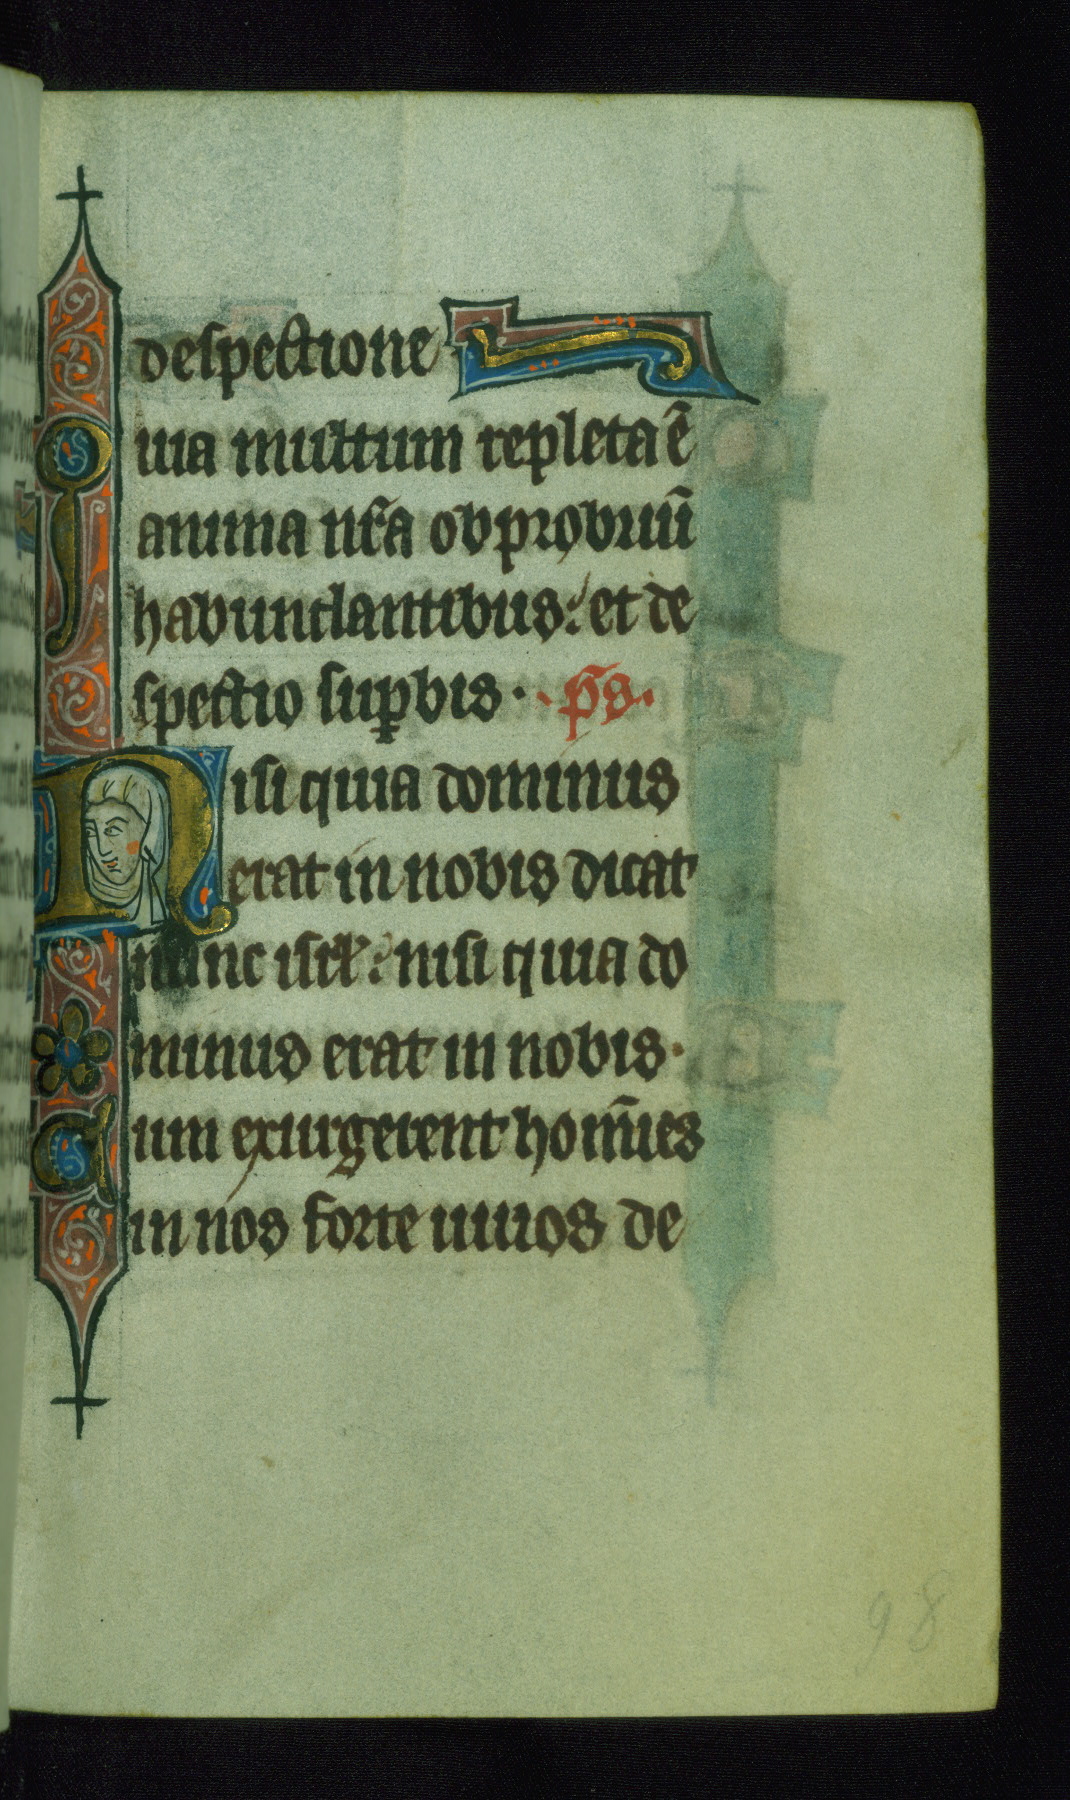 despectione
Quia multum repleta ē
anima nr̄a obprobriū
habundantibus: et de
spectio suꝑbis · p̄s.
Nisi quia dominus
erat in nobis dicat
nunc isrl̄: nisi quia do
minus erat in nobis ·
Cum exurgerent hom̄ies
in nos forte uiuos de
98